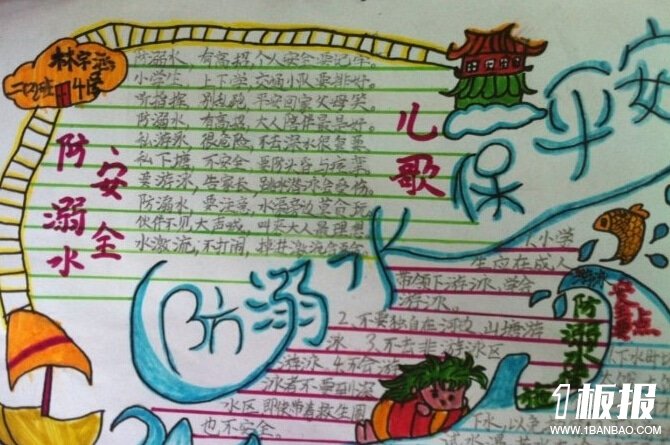 林宇涵
二(2)班
防溺水
安全
儿歌
防溺水，有高招，个人安全要记牢。
小学生，上下学，交通小队要排好。
别乱跑，平安回家父母笑。
防溺水，有高招，大人陪伴最是好。
私游泳，很危险，不去深水很重要。
私下塘，不安全，要防头昏与
要游泳，告家长，跳水游泳会受伤。
防溺水，要注意，水深旁边莫贪玩
伙伴不见大声喊，叫来大人最理想
水激流，不打闹，掉井激流会
防溺水
保平安
小学
生应在成人
带领下游泳、学会
游泳。
2、不要独自在河边、山塘游
泳 3、不去非游泳区
游泳 4、不会游
泳者不要到深
水区，即使带着救生圈
也不安全。
防溺水
下水时
下水，以免
1板报
WWW.1BANBAO.COM